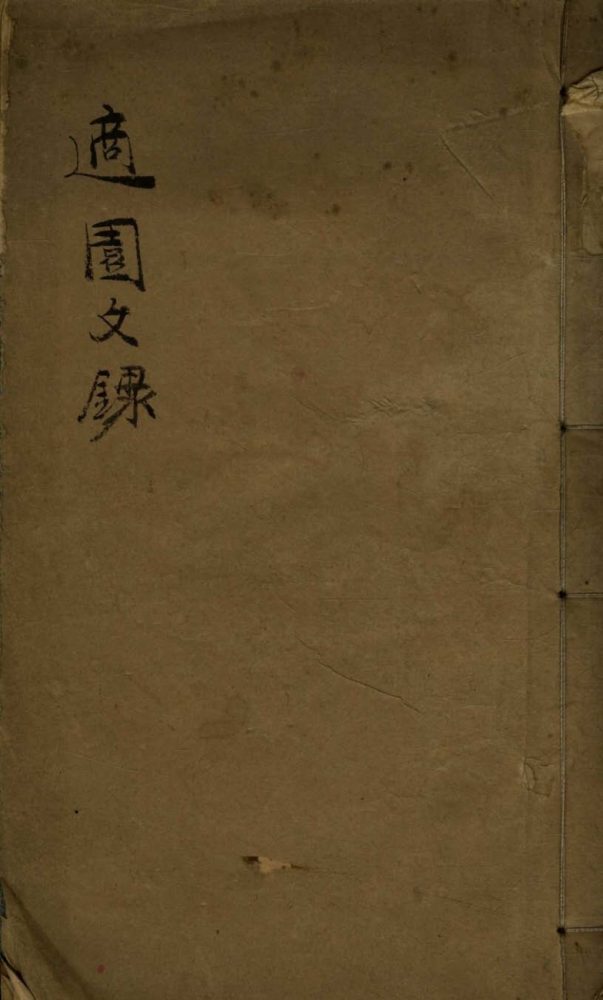 適園文錄